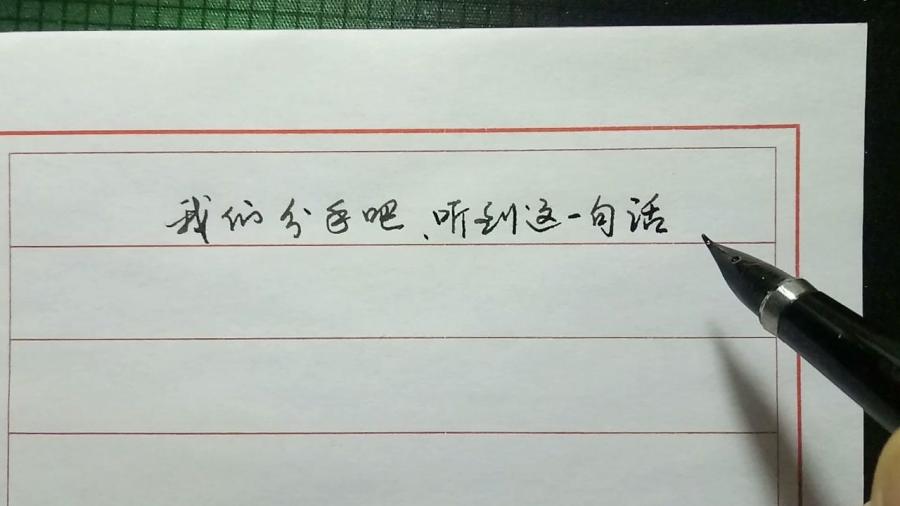 我们分手吧、听到这一句话